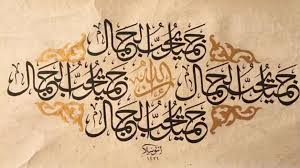 جميل يحب الجمال
جميل يحب الجمال الله جميل يحب الجمال
جميل يحب الجمال